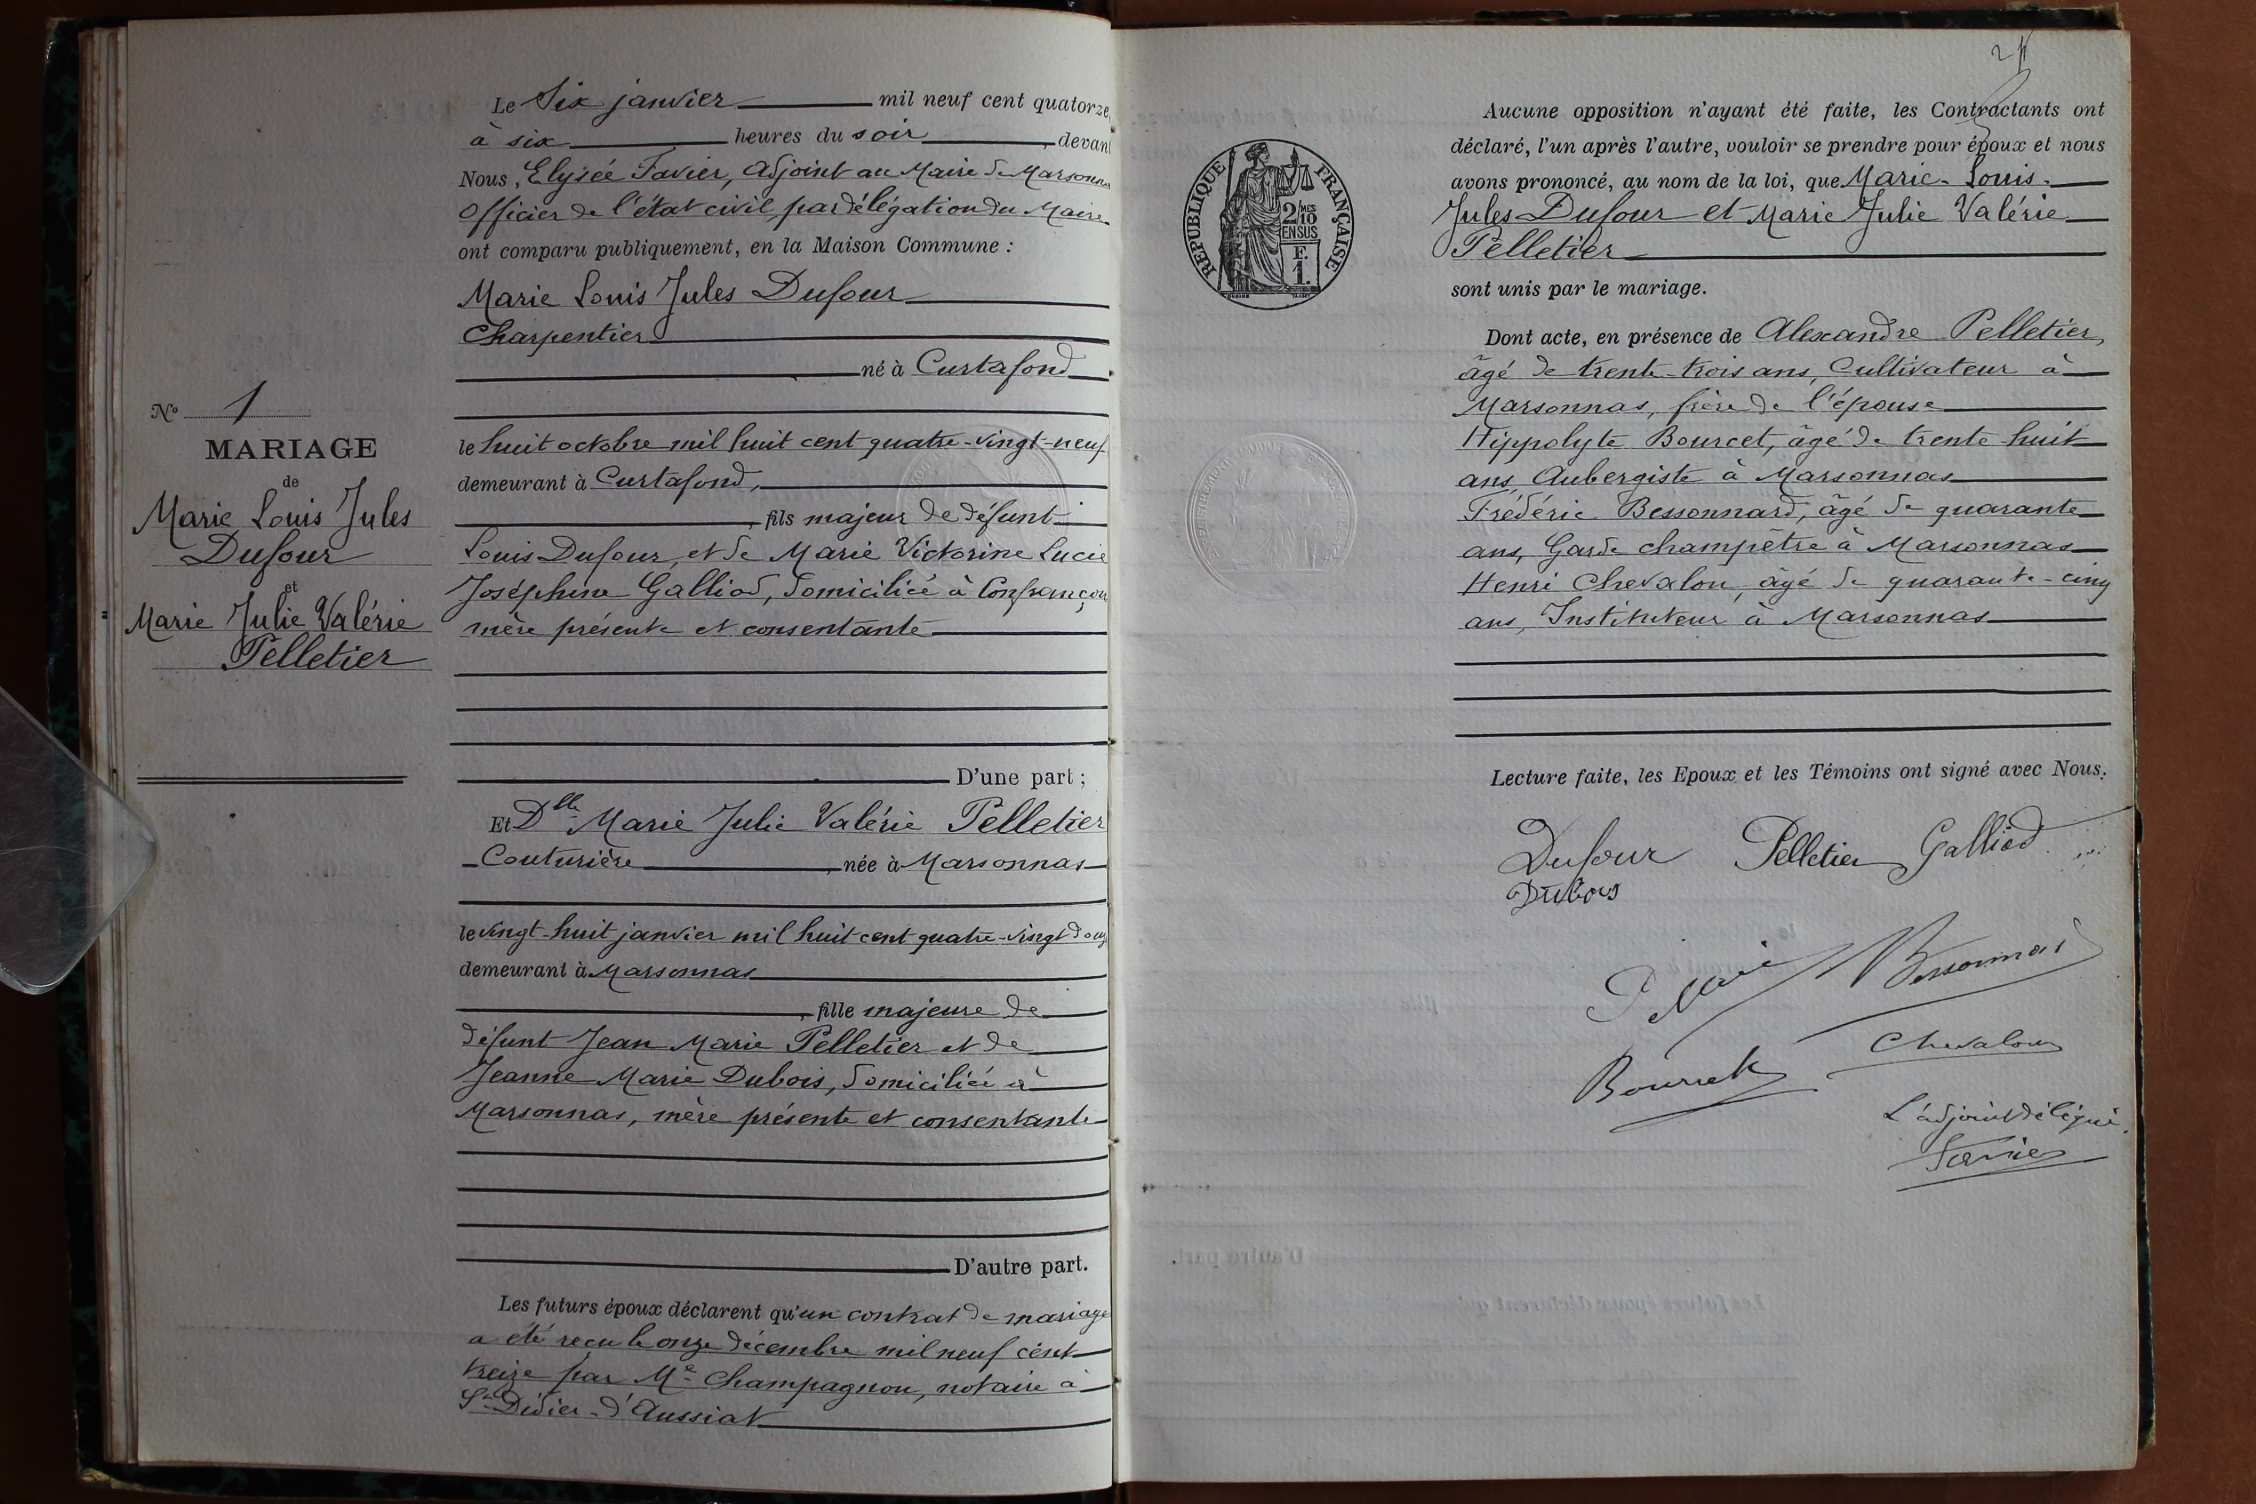 Le Six janvier mil neuf cent quatorze,
à six heures du soir, devant
Nous, Elysée Favier, Adjoint au Maire de Marsonnas
Officier de l'état civil par délégation du Maire
ont comparu publiquement, en la Maison Commune :
Marie Louis Jules Dufour
Charpentier
né à Curtafond
le huit octobre mil huit cent quatre-vingt-neuf
demeurant à Curtafond,
, fils majeur de défunt
Louis Dufour, et de Marie Victorine Lucie
Joséphine Galliod, domiciliée à Confrançon
mère présente et consentante
D'une part ;
Et Dlle Marie Julie Valérie Pelletier
Couturière, née à Marsonnas
le vingt-huit janvier mil huit cent quatre-vingt douze
demeurant à Marsonnas
, fille majeure de
défunt Jean Marie Pelletier et de
Jeanne Marie Dubois, domiciliée à
Marsonnas, mère présente et consentante
D'autre part.
Les futurs époux déclarent qu'un contrat de mariage
a été reçu le onze décembre mil neuf cent
treize par Me Champagnon, notaire à
St Didier-d'Aussiat
No 1
MARIAGE
de
Marie Louis Jules
Dufour
et
Marie Julie Valérie
Pelletier
REPUBLIQUE FRANÇAISE
2/10 MES
EN SUS
F.
1.
Aucune opposition n'ayant été faite, les Contractants ont
déclaré, l'un après l'autre, vouloir se prendre pour époux et nous
avons prononcé, au nom de la loi, que Marie-Louis-
Jules Dufour et Marie Julie Valérie
Pelletier
sont unis par le mariage.
Dont acte, en présence de Alexandre Pelletier,
âgé de trente-trois ans, Cultivateur à
Marsonnas, frère de l'épouse
Hippolyte Bourcet, âgé de trente huit
ans, Aubergiste à Marsonnas
Frédéric Bessonnard, âgé de quarante
ans, Garde champêtre à Marsonnas
Henri Chevalon, âgé de quarante-cinq
ans, Instituteur à Marsonnas
Lecture faite, les Epoux et les Témoins ont signé avec Nous.
Dufour Pelletier Galliod
Dubois
Bessonnard
Chevalon
L'adjoint délégué,
Favier